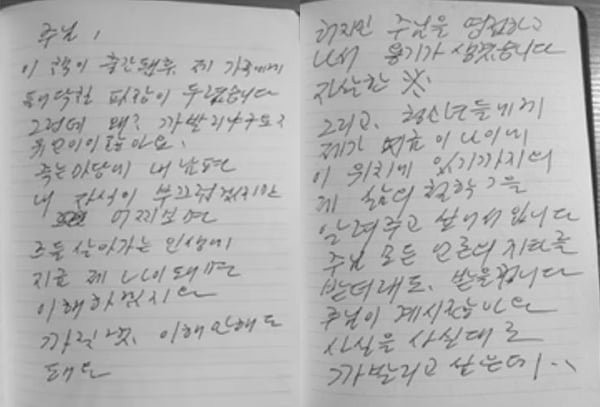 주님,
이 책이 출간된후, 제 가족에게
닥칠 파장이 두렵습니다
그런데 왜? 까발리냐구요?
유언이 이 많아요.
죽는마당에 내 남편
내 자식이 부끄럽겠지만
어찌보면
모두 살아가는 인생에
지금 제 나이 돼면
이해하겠지요
까짓것, 이해 안해도
돼요
하지만 주님을 영접하고
나서 용기가 생겼습니다
자살할
그리고, 청소년들에게
제가 지금 이 나이에
이 위치에 있기까지의
제 삶의 철학 그를
알려주고 싶어서입니다
주님 모든 언론의 지탄을
받더래도, 받을겁니다
주님이 계시잖아요
사실을 사실대로
까발리고 싶은데...